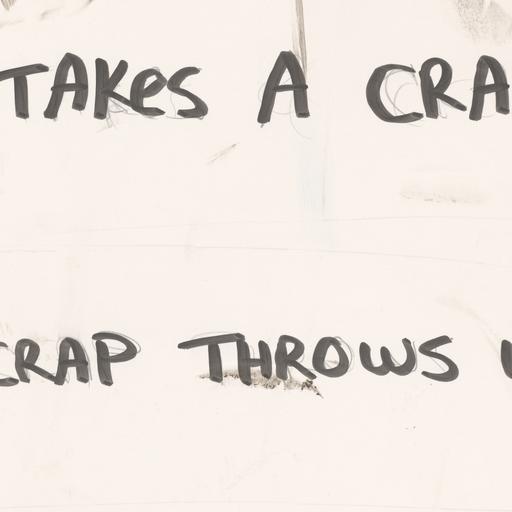 TAKES A CRA
CRAP THROWS